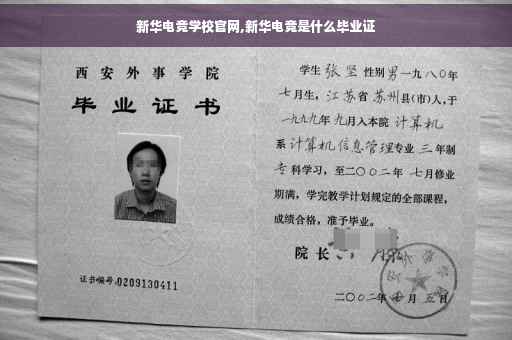 新华电竞学校官网,新华电竞是什么毕业证
西安外事学院
毕业证书
证书编号:0209130411
学生 张坚 性别 男 一九八〇年
七月生, 江苏省 苏州县(市)人,于
一九九九年 九月入本院 计算机
系 计算机信息管理专业 三 年制
专科学习, 至二〇〇二年 七月修业
期满, 学完教学计划规定的全部课程,
成绩合格, 准予毕业。
院长
二〇〇二年 月五日